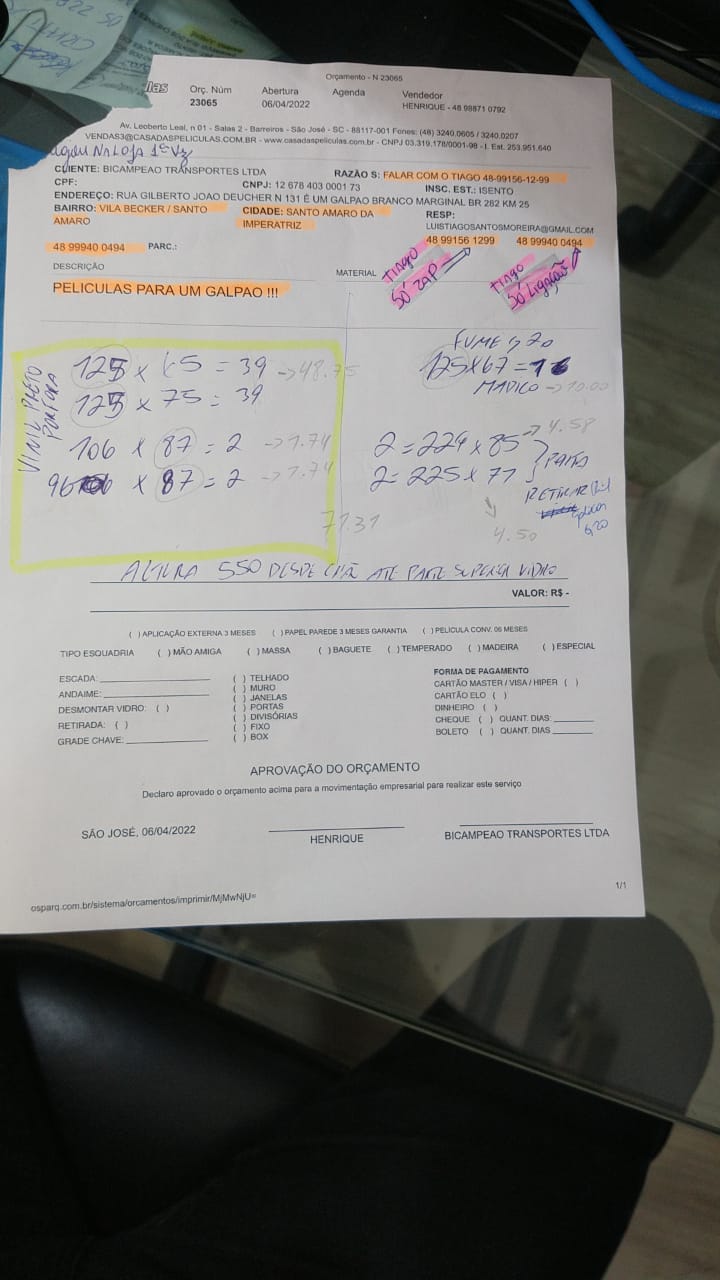 Orçamento - N 23065
las
Orç. Núm Abertura Agenda Vendedor
23065 06/04/2022 HENRIQUE - 48 98871 0792
Av. Leoberto Leal, n 01 - Salas 2 - Barreiros - São José - SC - 88117-001 Fones: (48) 3240.0605 / 3240.0207
VENDAS3@CASADASPELICULAS.COM.BR - www.casadaspeliculas.com.br - CNPJ 03.319.178/0001-98 - I. Est. 253.951.640
Na Loja 1ª Vz
CLIENTE: BICAMPEAO TRANSPORTES LTDA RAZÃO S: FALAR COM O TIAGO 48-99156-12-99
CPF: CNPJ: 12 678 403 0001 73 INSC. EST.: ISENTO
ENDEREÇO: RUA GILBERTO JOAO DEUCHER N 131 É UM GALPAO BRANCO MARGINAL BR 282 KM 25
BAIRRO: VILA BECKER / SANTO AMARO CIDADE: SANTO AMARO DA IMPERATRIZ RESP: LUISTIAGOSANTOSMOREIRA@GMAIL.COM
48 99940 0494 PARC.: 48 99156 1299 48 99940 0494
DESCRIÇÃO MATERIAL
TIAGO SÓ ZAP
TIAGO SÓ LIGAÇÃO
PELICULAS PARA UM GALPAO !!!
VINIL PRETO POR FORA
125 x 65 = 39 → 48.75
125 x 75 = 39
106 x 87 = 2 → 1.74
96 x 87 = 2 → 1.74
71.31
FUME G20
125x67 = 16
→ 10.00
2 = 224 x 85 → 4.58
2 = 225 x 77
4.50
RETIRAR
G20
ALTURA 550 DESDE CHÃO ATE PARTE SUPERIOR VIDRO
VALOR: R$ -
( ) APLICAÇÃO EXTERNA 3 MESES ( ) PAPEL PAREDE 3 MESES GARANTIA ( ) PELICULA CONV. 06 MESES
TIPO ESQUADRIA ( ) MÃO AMIGA ( ) MASSA ( ) BAGUETE ( ) TEMPERADO ( ) MADEIRA ( ) ESPECIAL
ESCADA:
ANDAIME:
DESMONTAR VIDRO: ( )
RETIRADA: ( )
GRADE CHAVE:
( ) TELHADO
( ) MURO
( ) JANELAS
( ) PORTAS
( ) DIVISÓRIAS
( ) FIXO
( ) BOX
FORMA DE PAGAMENTO
CARTÃO MASTER / VISA / HIPER ( )
CARTÃO ELO ( )
DINHEIRO ( )
CHEQUE ( ) QUANT. DIAS:
BOLETO ( ) QUANT. DIAS
APROVAÇÃO DO ORÇAMENTO
Declaro aprovado o orçamento acima para a movimentação empresarial para realizar este serviço
SÃO JOSÉ, 06/04/2022 HENRIQUE BICAMPEAO TRANSPORTES LTDA
1/1
osparq.com.br/sistema/orcamentos/imprimir/MjMwNjU=